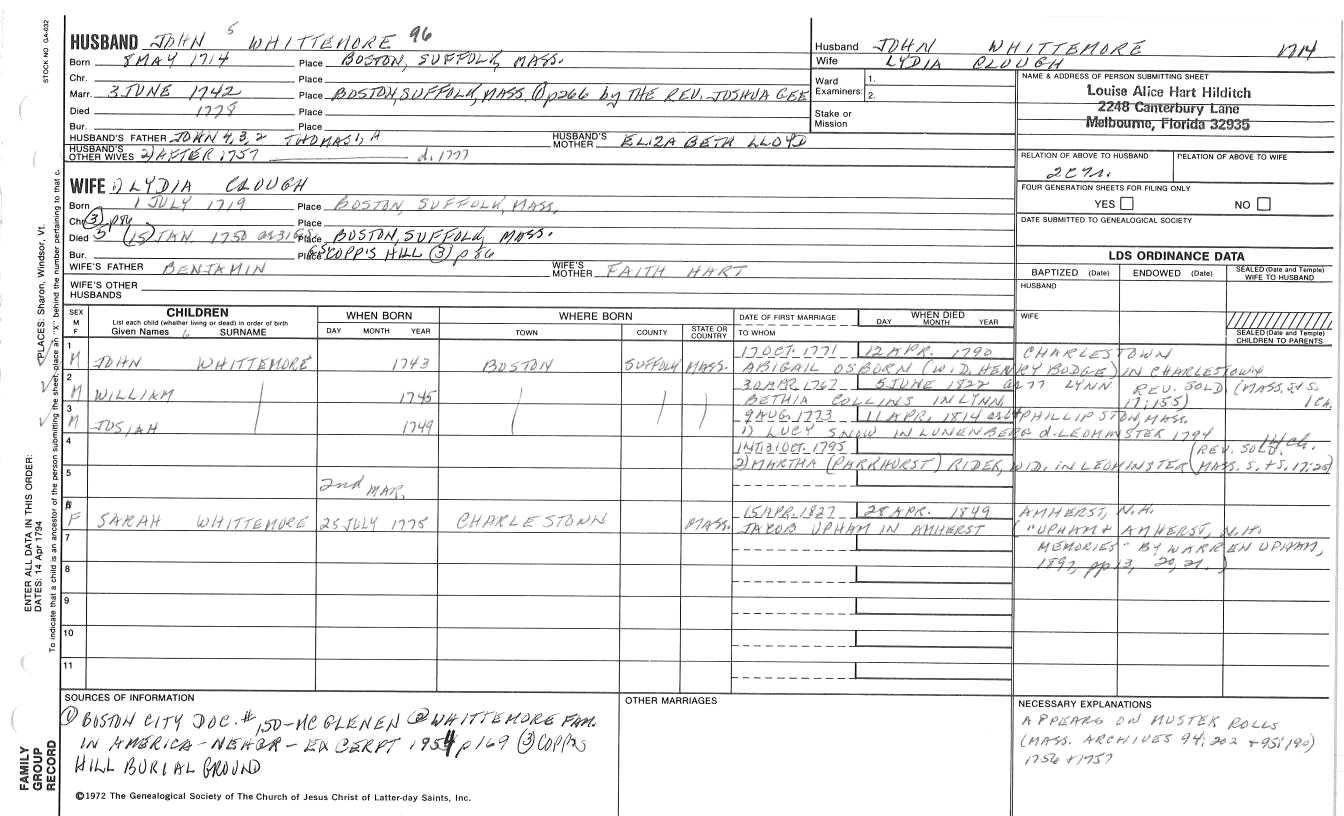 STOCK NO. GA-032
HUSBAND JOHN 5 WHITTEMORE 96
Born 8 MAY 1714 Place BOSTON, SUFFOLK, MASS.
Chr. Place
Marr. 3 JUNE 1742 Place BOSTON, SUFFOLK, MASS. (1) p266 by THE REV. JOSHUA GEE
Died 1778 Place
Bur. Place
HUSBAND'S FATHER JOHN 4, 3, 2 THOMAS 1, A HUSBAND'S MOTHER ELIZABETH LLOYD
HUSBAND'S OTHER WIVES 2) AFTER 1757 d. 1777
Husband JOHN WHITTEMORE 1714
Wife LYDIA CLOUGH
Ward Examiners: 1.
2.
Stake or Mission
NAME & ADDRESS OF PERSON SUBMITTING SHEET
Louise Alice Hart Hilditch
2248 Canterbury Lane
Melbourne, Florida 32935
RELATION OF ABOVE TO HUSBAND RELATION OF ABOVE TO WIFE
FOUR GENERATION SHEETS FOR FILING ONLY
YES NO
DATE SUBMITTED TO GENEALOGICAL SOCIETY
WIFE 1) LYDIA CLOUGH
Born 1 JULY 1719 Place BOSTON, SUFFOLK, MASS.
Chr. (3) p84 Place
Died 5 (15) JAN. 1750 Place BOSTON, SUFFOLK, MASS.
Bur. Place COPP'S HILL (3) p 86
WIFE'S FATHER BENJAMIN WIFE'S MOTHER FAITH HART
WIFE'S OTHER HUSBANDS
LDS ORDINANCE DATA
BAPTIZED (Date) ENDOWED (Date) SEALED (Date and Temple) WIFE TO HUSBAND
HUSBAND
WIFE
SEALED (Date and Temple) CHILDREN TO PARENTS
SEX M F
CHILDREN
List each child (whether living or dead) in order of birth
Given Names 6 SURNAME
WHEN BORN
DAY MONTH YEAR
WHERE BORN
TOWN COUNTY STATE OR COUNTRY
DATE OF FIRST MARRIAGE
TO WHOM
WHEN DIED
DAY MONTH YEAR
1 M JOHN WHITTEMORE 1743 BOSTON SUFFOLK MASS. 17 OCT. 1771 12 APR. 1790 CHARLESTOWN
ABIGAIL OSBORN (WID. HENRY BODGE) IN CHARLESTOWN
2 M WILLIAM 1745 30 APR. 1767 5 JUNE 1822 ae 77 LYNN REV. SOLD. (MASS. S+S. 17:155)
BETHIA COLLINS IN LYNN
3 M JOSIAH 1749 9 AUG. 1773 11 APR. 1814 PHILLIPSTON, MASS.
1) LUCY SNOW IN LUNENBERG d. LEOMINSTER 1794
4 INT. 31 OCT. 1795 (REV. SOLD.
2) MARTHA (PARKHURST) RIDER, WID. IN LEOMINSTER (MASS. S. +S. 17:25)
5 2nd MAR.
6 F SARAH WHITTEMORE 25 JULY 1775 CHARLESTOWN MASS. 15 APR. 1827 28 APR. 1849 AMHERST, N.H.
JACOB UPHAM IN AMHERST ("UPHAM & AMHERST, N.H.
7 MEMORIES" BY WARREN UPHAM,
1897, pp 13, 20, 21.)
8
9
10
11
SOURCES OF INFORMATION
(1) BOSTON CITY DOC. #150-MCGLENEN (2) WHITTEMORE FAM.
IN AMERICA - NEHGR - EXCERPT 1954 p169 (3) COPP'S
HILL BURIAL GROUND
OTHER MARRIAGES
NECESSARY EXPLANATIONS
APPEARS ON MUSTER ROLLS
(MASS. ARCHIVES 94; 202 + 95; 190)
1756 + 1757
©1972 The Genealogical Society of The Church of Jesus Christ of Latter-day Saints, Inc.
FAMILY GROUP RECORD
ENTER ALL DATA IN THIS ORDER:
DATES: 14 Apr 1794
PLACES: Sharon, Windsor, Vt.
To indicate that a child is an ancestor of the person submitting the sheet, place an "X" behind the number pertaining to that c.